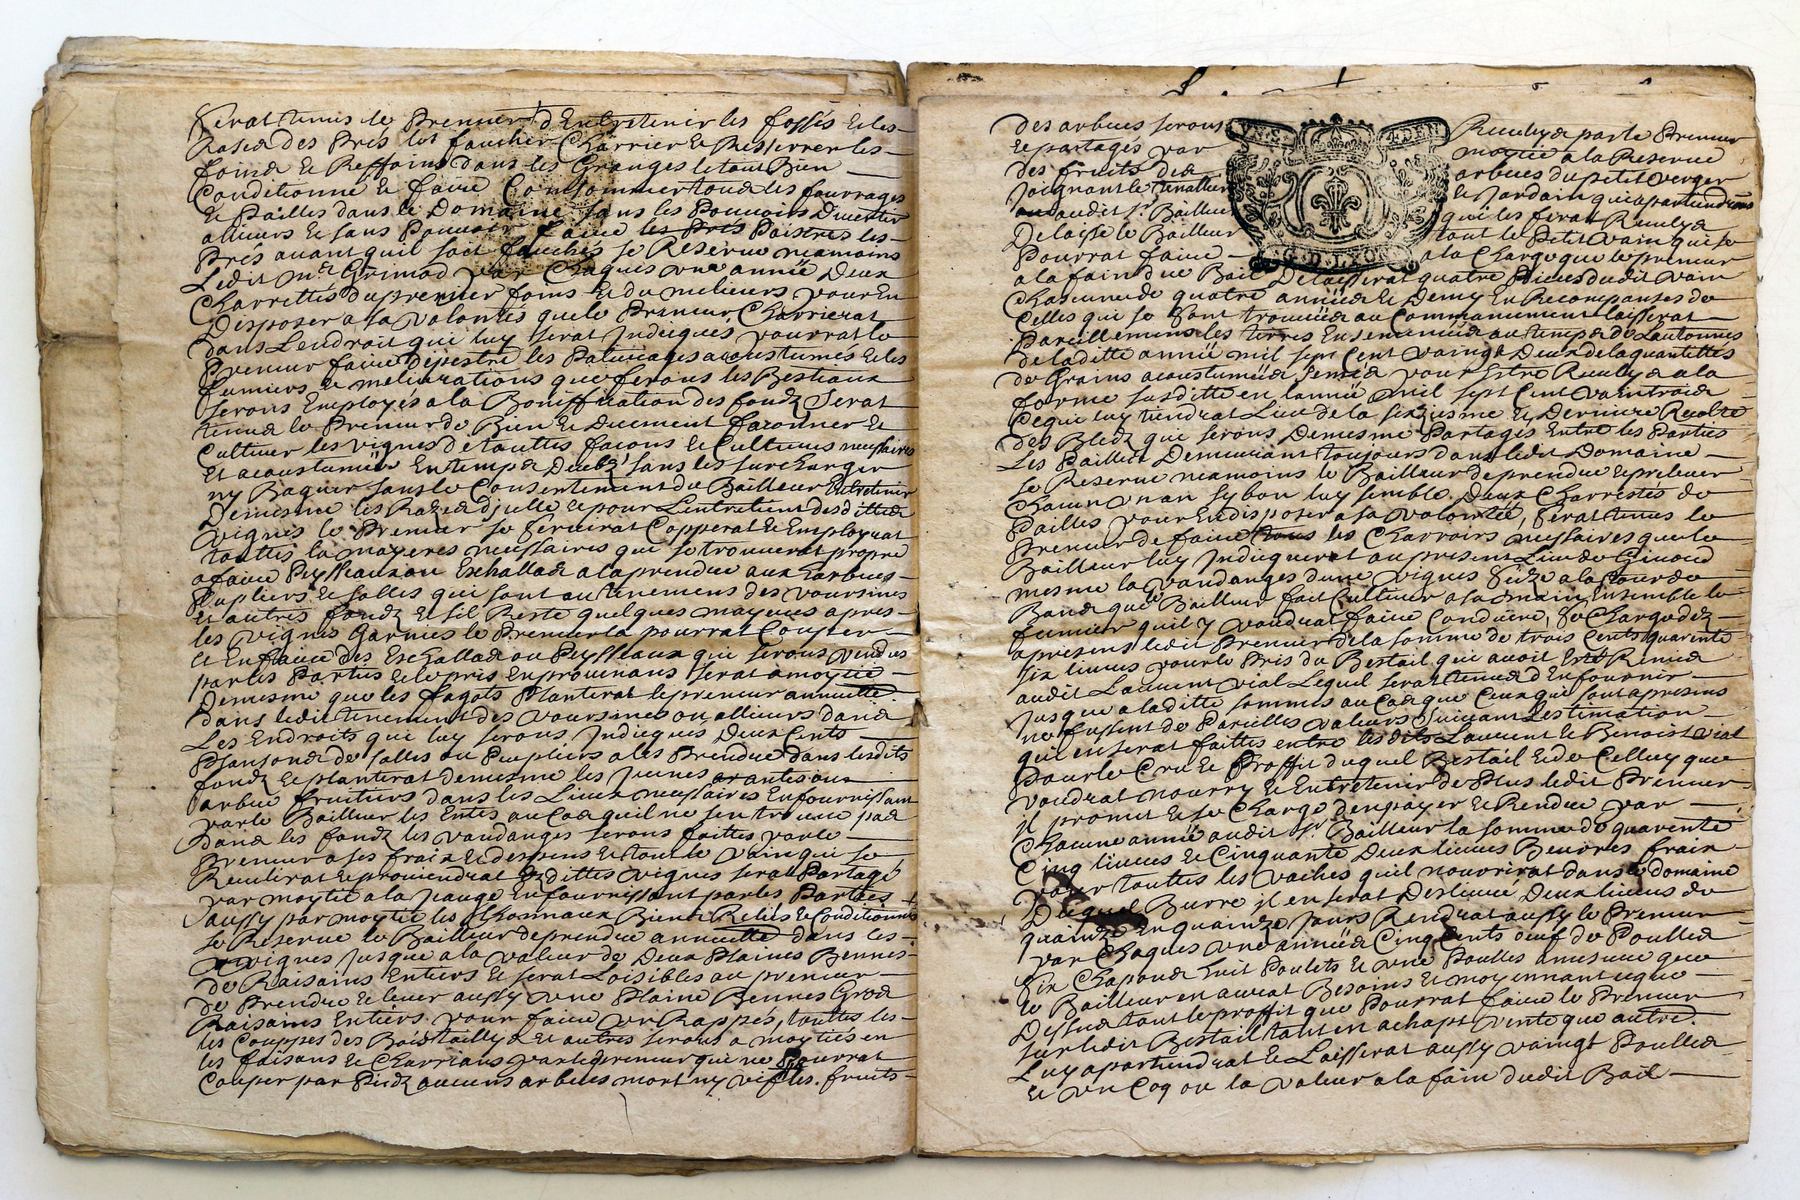 Serat tenus le Preneur d'Entretenir les fossés Et les
Rases des Prés les faucher Charrier Et Resserrer les
foins Et Reffoins dans les Granges le tout Bien
Conditionné Et faire Consommer tous les fourrages
Et Pailles dans le Domaine sans les Pouvoirs Divertir
allieurs Et sans Pouvoir faire les Prés Paistres les
Prés avant quil soit fauchés se Reserve neamoins
Ledit Mr Grimod par Chaques une année Deux
Charrettes du premier foins Et du melieurs pour En
Disposer a sa volontés que le Preneur Charrierat
dans Lendroit qui luy serat Indiques pourrat le
Preneur faire depestre les Paturages acoustumés Et les
fumiers Et meliorations que ferons les Bestiaux
serons Employés a la Boniffication des fondz Serat
tenus le Preneur de Bien Et Duement façonner Et
Cultiver les vignes de touttes façons Et Cultures necessaires
Et acoustumées En temps Deubz sans les surcharger
ny Baguer sans le Consentement du Bailleur Entretenir
Demesme les Rases d'jcelle Et pour L'entretient desdittes
vignes le Preneur se servirat Copperat Et Employrat
touttes la mayeres necessaires qui se trouverat propre
a faire Peysseaux ou Eschallas a la prendre aux Harbres
Pupliers Et salles qui sont au tenement des voursines
Et autres fondz Et sil Reste quelques mayeres apres
les vignes Garnies le Preneur la pourrat Coupter
Et En faire des Eschallas ou Peysseaux qui serons vendus
par les Parties Et le pris En provenans serat a moytie
Demesme que les fagots Planterat le preneur annuelle
dans ledit tenement des voursines ou allieurs dans
Les Endroits qui luy serons Indiques Deux Cents
Plansons de salles ou Peupliers a les Prendre dans lesdits
fondz Et planterat demesme les Jeunes
arbres fruitiers dans les Lieux necessaires En fournissant
par le Bailleur les Entes au Cas quil ne sen trouve pas
dans les fondz les vandanges serons faittes par le
Preneur a ses fraix Et despens Et tout le vain qui se
Reculirat Et proviendrat Esdittes vignes serat Partagé
par moytié a la Jauge En fournissant par les Parties
aussy par moytie les thonnaux Bien Reliés Et Conditionnes
se Reserve le Bailleur de prendre annuelle dans les
vignes jusque a la valeur de Deux Plaines Bennes
de Raisains Entiers Et serat Loisibles au preneur
de Prendre Et lever aussy une Plaine Bennes Gros
Raisains Entiers pour faire un Rappés, touttes les
les Couppes des Bois taillys Et autres serons a moyties en
les faisans Et Charrians par le preneur qui ne Pourrat
Couper par Piedz aucuns arbres mort ny vifs les fruits
des arbres serons Reculys par le Preneur
Et partages par moytié a la Reserve
des fruits des arbres du petit verger
Joignant le Jardain qui apartiendrons
audit Sr Bailleur qui les ferat Reculyr
Delaisse le Bailleur tout le Petit vain qui se
Pourrat faire a la Charge que le preneur
a la fain due Bail Delaisserat quatre Pieces dudit vain
Chascunne de quatre années Et Demy En Recompanses de
Celles qui se sont trouvées au Commancement laisserat
Pareillement les terres Ensemencées au temps de Lautonnes
de laditte année mil sept Cent vaingt Deux de la quantittés
de Grains acoustumées semés pour Estre Reculys a la
forme susditte en lannée mil sept Cent vaintrois
Ce qui luy tiendrat Lieu de la sixiesme Et Derniere Recolte
Des Bledz qui serons Demesme Partagés Entre les Parties
Les Pailles Demeurant toujours dans ledit Domaine
se Reserve neamoins le Bailleur de prendre Et prelever
Chacun un an sy bon luy semble Deux Charrettes de
Pailles pour En disposer a sa volontée, serat tenus le
Preneur de faire tous les Charroirs necessaires que le
Bailleur luy Indiquerat au present Lieu de
mesme la vandanges dune vignes Size a la tour de
que le Bailleur fait Cultiver a sa main Ensemble le
fumier quil y voudrat faire Conduire, se Charge dez
apresens ledit Preneur de la somme de trois Cents quarente
six livres pour le Pris du Bestail qui avoit Esté Remis
audit Laurent vial Lequel serat tenus d'En fournir
Jusque a laditte sommes au Cas que Ceux qui sont apresens
ne fussent de Pareilles valeurs Suivant Lestimation
qui en serat faittes entre lesdits Laurent Et Benoist vial
Pour le Cru Et Proffit duquel Bestail Et de Celluy que
voudrat nourry Et Entretenir de Plus ledit Preneur
jl promet Et se Charge den payer Et Rendre par
Chacune année audit Sr Bailleur la somme de quarente
Cinq livres Et Cinquante Deux livres Beurres frais
pour touttes les vaches quil nourrirat dans le domaine
Duquel Burre jl en serat Deslivré Deux livres de
quainze En quainze Jours Rendrat aussy le Preneur
par Chaques une années Cinq Cents oeuf de Poulles
six Chapons huit Poulets Et une Poulles amesure que
le Bailleur en aurat Besoins Et moyennant ce que
Dessus tout le proffit que Pourrat faire le Preneur
sur ledit Bestail tant en achapt vente que autre
Luy apartiendrat Et Laisserat aussy vaingt Poulles
Et un Coq ou la valeur a la fain dudit Bail
G. D. LYON